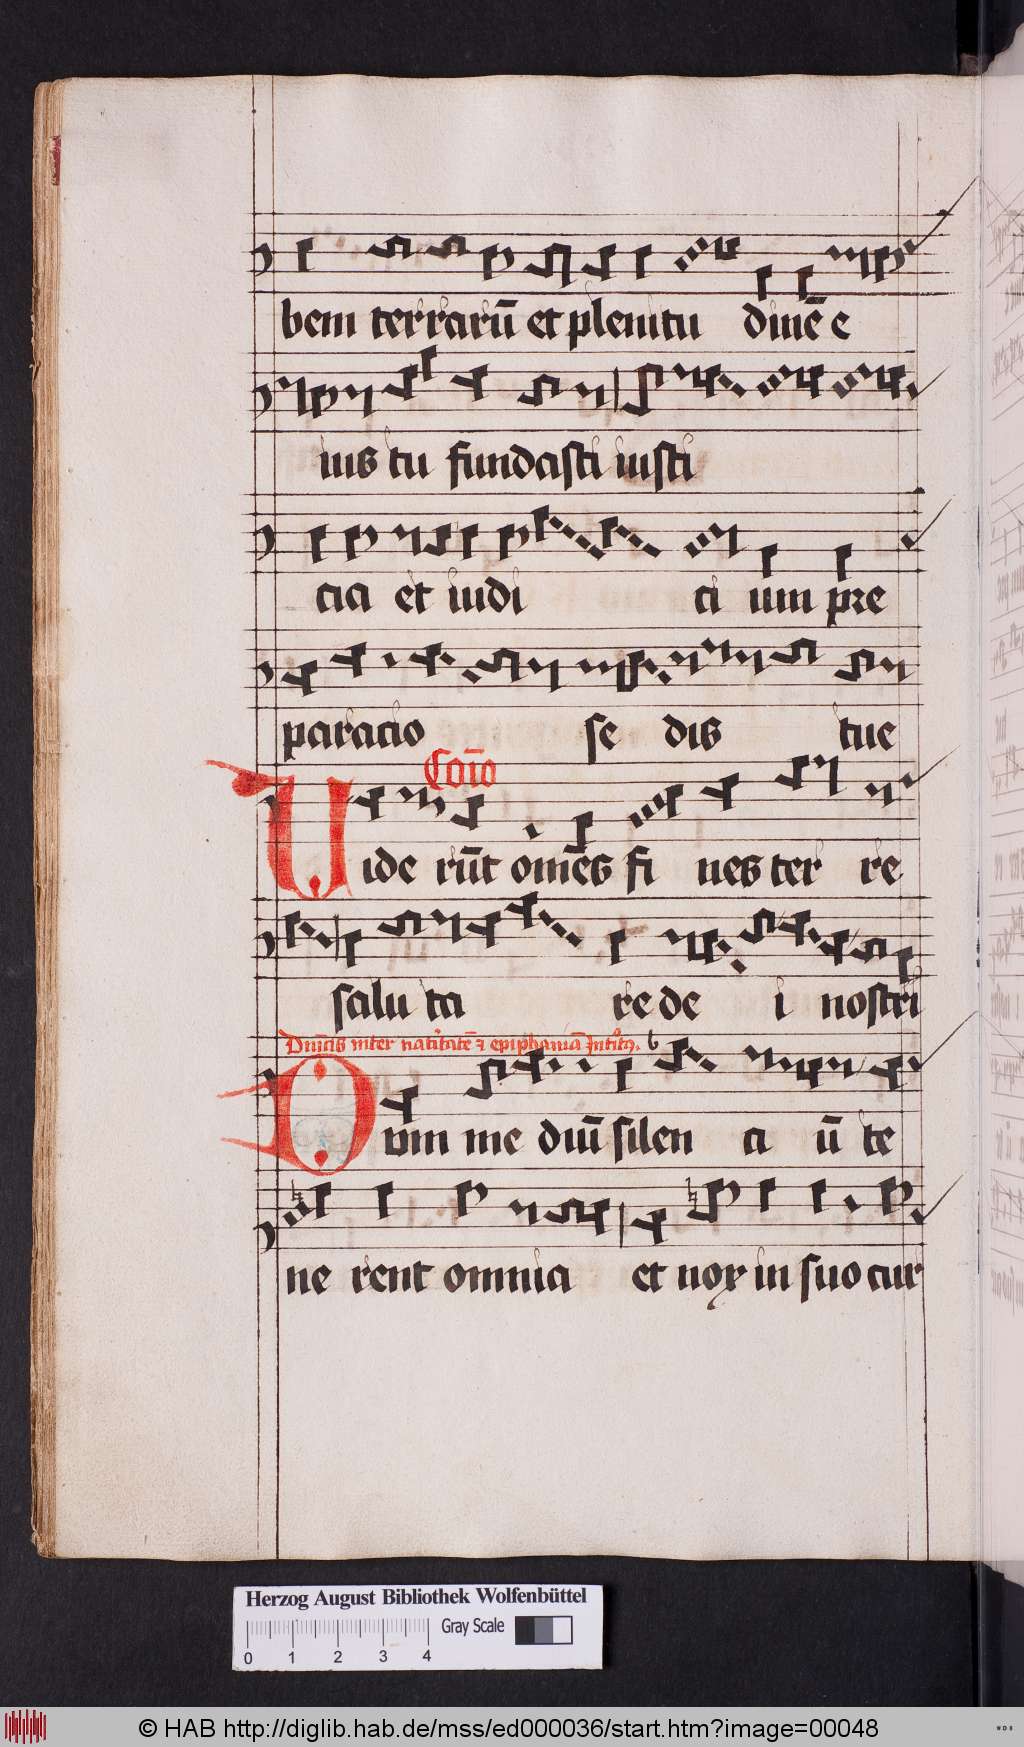 bem terrarū et plenitu dinē e
ius tu fundasti iusti
cia et iudi ci um pre
paracio se dis tue
Cōio
Vide rūt omēs fi nes ter re
salu ta re de i nostri
Dnicis inter natītatē ⁊ epiphaniā
Dum me diū silen ci ū te
ne rent omnia et nox in suo cur
Herzog August Bibliothek Wolfenbüttel
Gray Scale
0 1 2 3 4
© HAB http://diglib.hab.de/mss/ed000036/start.htm?image=00048